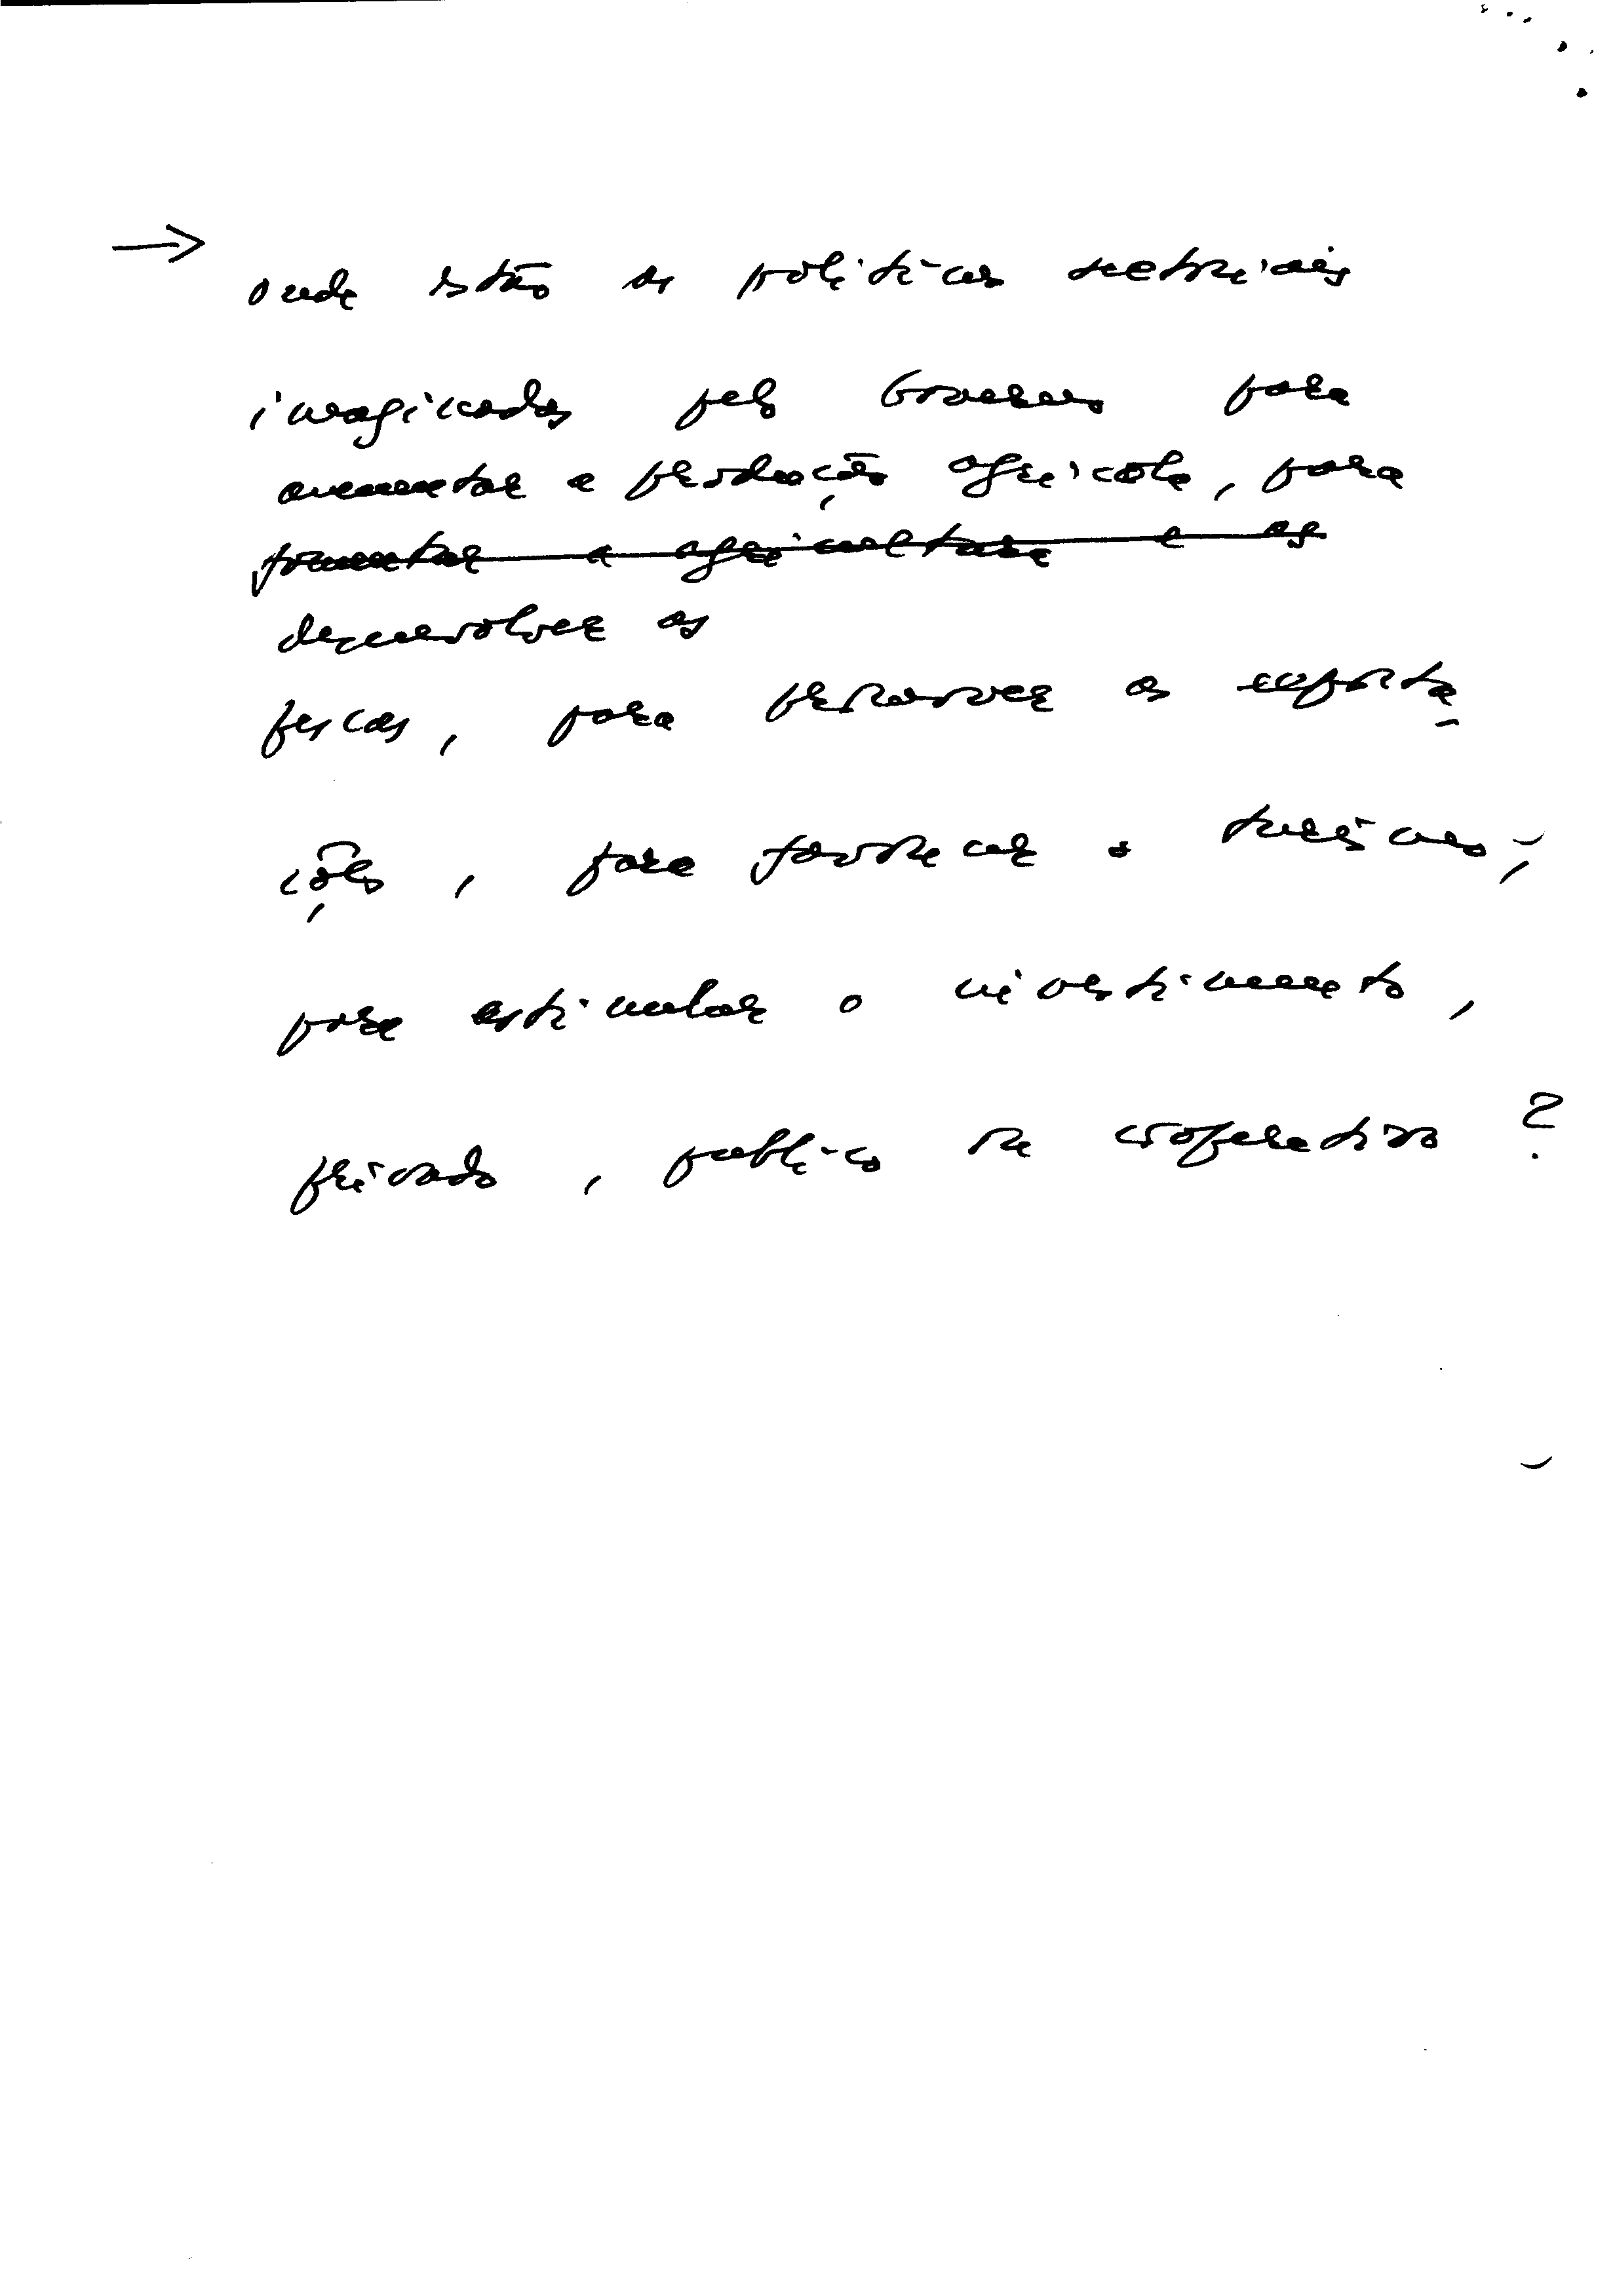 → onde estão as políticas sectoriais
imaginadas pelo Governo para
aumentar a produção agrícola, para
fomentar a agricultura e as
desenvolver as
pescas, para promover as exporta-
ções, para favorecer o turismo,
para estimular o investimento,
privado, público ou cooperativo ?